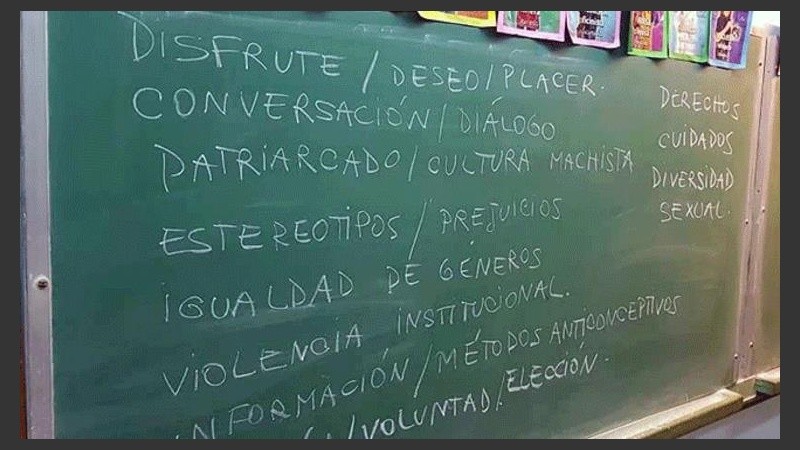 DISFRUTE / DESEO / PLACER.
CONVERSACIÓN / DIÁLOGO
PATRIARCADO / CULTURA MACHISTA
ESTEREOTIPOS / PREJUICIOS
IGUALDAD DE GÉNEROS
VIOLENCIA INSTITUCIONAL.
INFORMACIÓN / MÉTODOS ANTICONCEPTIVOS
/ VOLUNTAD / ELECCIÓN.
DERECHOS
CUIDADOS
DIVERSIDAD
SEXUAL.